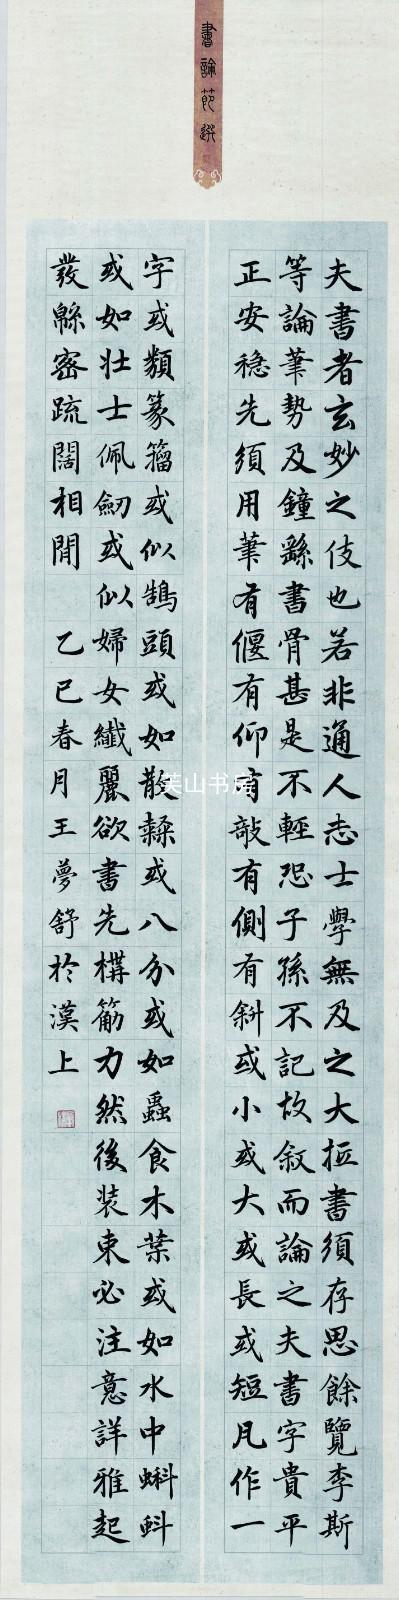 書論節選
夫書者玄妙之伎也若非通人志士學無及之大抵書須存思餘覽李斯
等論筆勢及鐘繇書骨甚是不輕恐子孫不記故敘而論之夫書字貴平
正安穩先須用筆有偃有仰有敧有側有斜或小或大或長或短凡作一
字或類篆籀或似鵠頭或如散隸或八分或如蟲食木葉或如水中蝌蚪
或如壯士佩劒或似婦女纖麗欲書先構筋力然後裝束必注意詳雅起
發緜密疏闊相間 乙巳春月王夢舒於漢上
美山书房